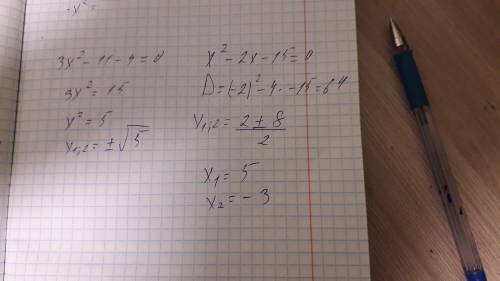 -x² =
3x² - 11 - 4 = 0
3x² = 15
x² = 5
x₁;₂ = ±√5
x² - 2x - 15 = 0
D = (-2)² - 4 · -15 = 64
x₁;₂ = 2 ± 8 / 2
x₁ = 5
x₂ = - 3